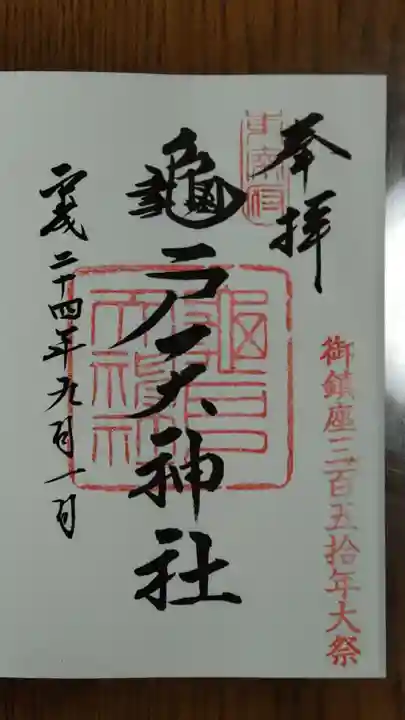 奉拝
御鎮座三百五拾年大祭
龜戸天神社
平成二十四年九月一日